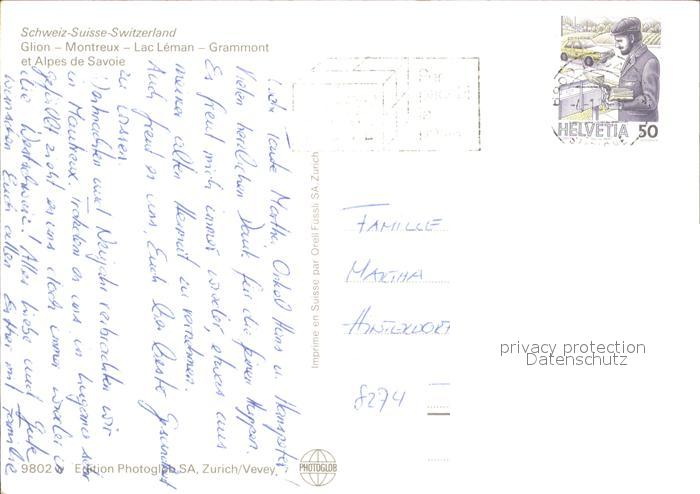 Schweiz-Suisse-Switzerland
Glion – Montreux – Lac Léman – Grammont
et Alpes de Savoie
HELVETIA 50
Liebe Tante Martha, Onkel Hans u. Hanspeter!
Vielen herzlichen Dank für die feinen
Es freut mich immer wieder, etwas aus
meiner alten Heimat zu vernehmen.
Auch freut es uns, Euch bei bester Gesundheit
zu wissen.
Weihnachten und Neujahr verbrachten wir
in Montreux. Trotzdem es uns in Lugano sehr
gefällt zieht es uns doch immer wieder in
die Westschweiz! Alles Liebe und Gute
wünschen Euch allen Esther mit Familie
Imprimé en Suisse par Orell Füssli SA, Zurich
FAMILLE
MARTHA
8274
privacy protection
Datenschutz
9802 Edition Photoglob SA, Zurich/Vevey
PHOTOGLOB